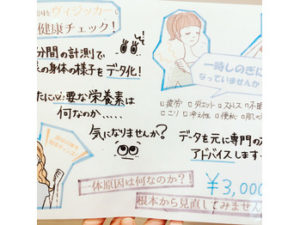 ヴィジッカー
健康チェック!
分間の計測で
の身体の様子をデータ化!
一時しのぎに
なっていませんか
□疲労 □ダイエット □ストレス □不眠
□コリ □冷え性 □便秘 □肌
たに必要な栄養素は
何なのか.....
気になりませんか?
データを元に専門の
アドバイスします
一体原因は何なのか?!
¥3,000
根本から見直してみません